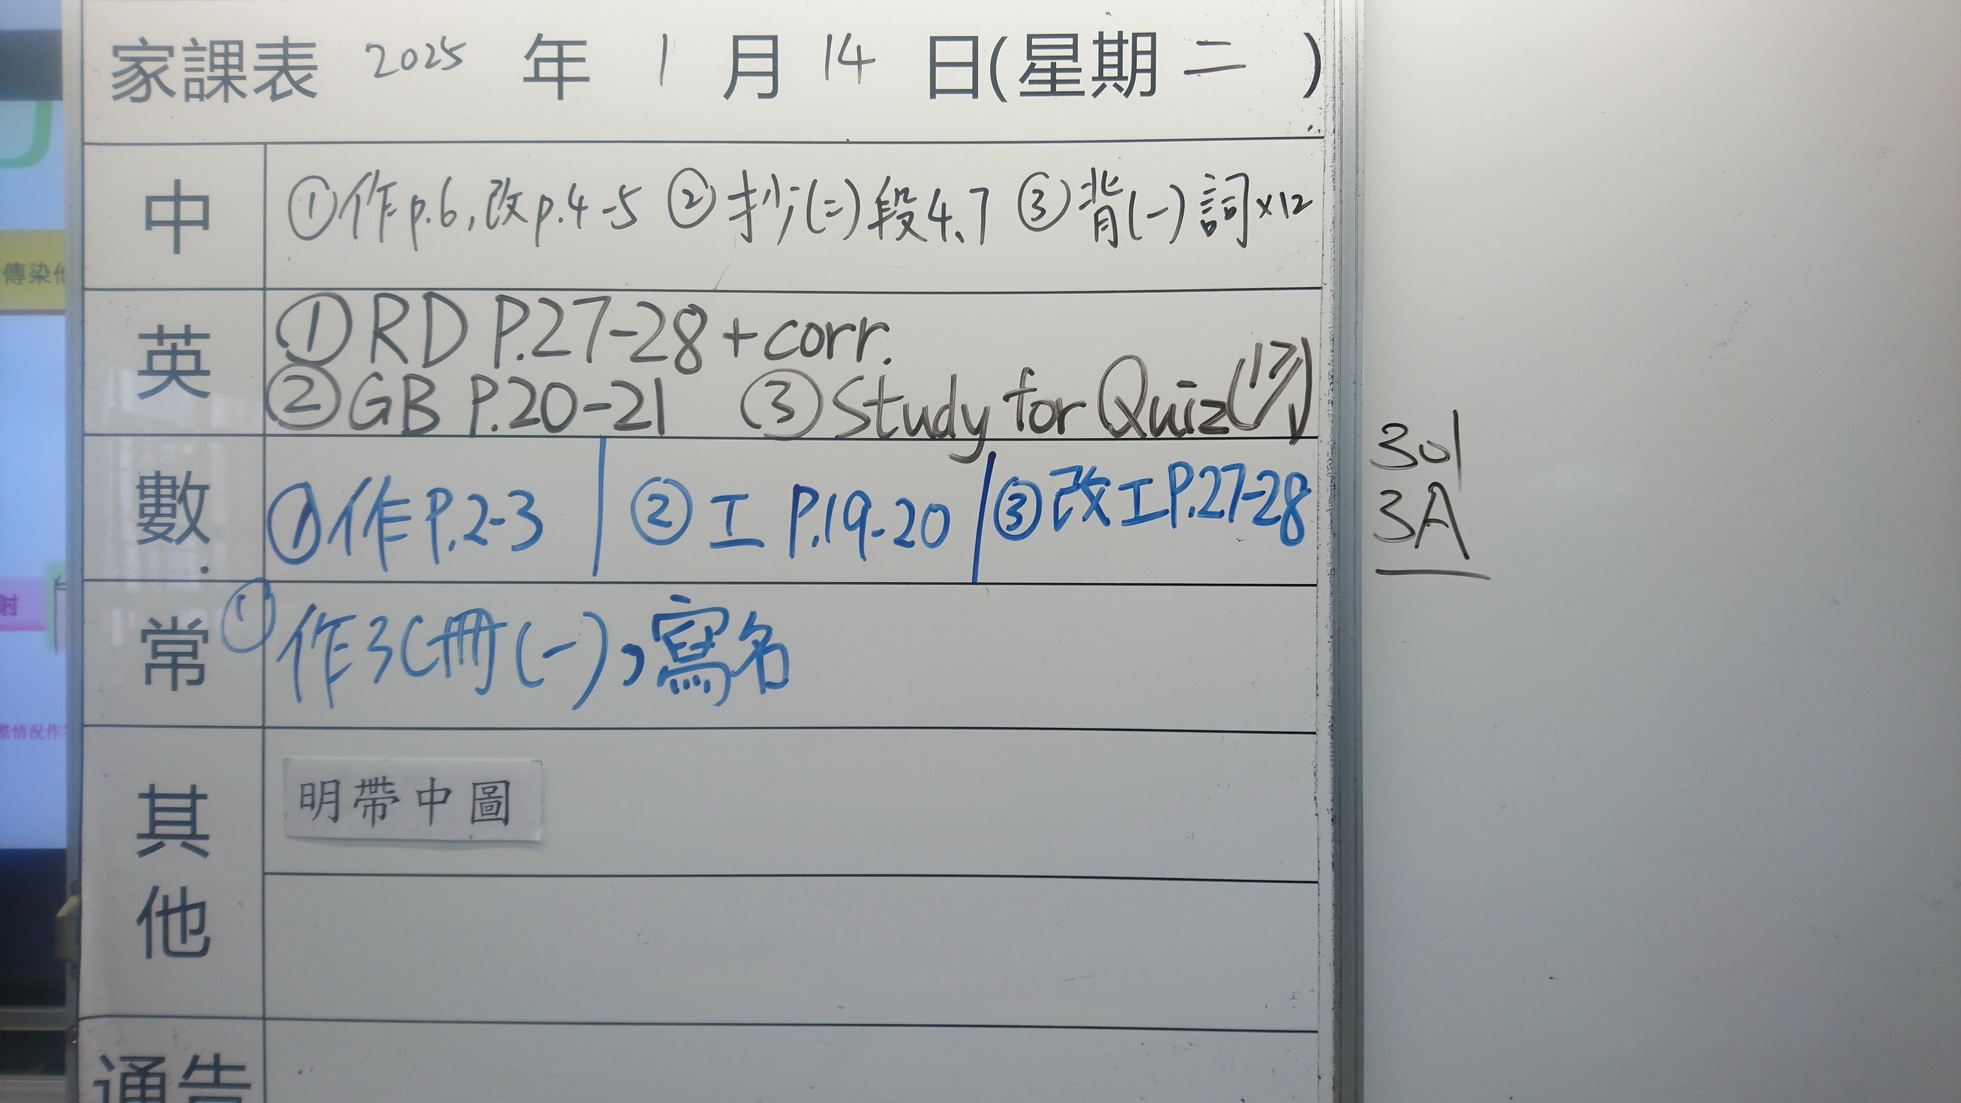 家課表 2025 年 1 月 14 日(星期二)
中 ①作p.6,改p.4-5 ②抄(二)段4、7 ③背(一)詞×12
英 ①RD P.27-28+corr.
②GB P.20-21 ③Study for Quiz(17/1)
數 ①作P.2-3 ②工 P.19-20 ③改工P.27-28
常 ①作3C冊(一),寫名
其他 明帶中圖
通告
301
3A
傳染
射
際情況作